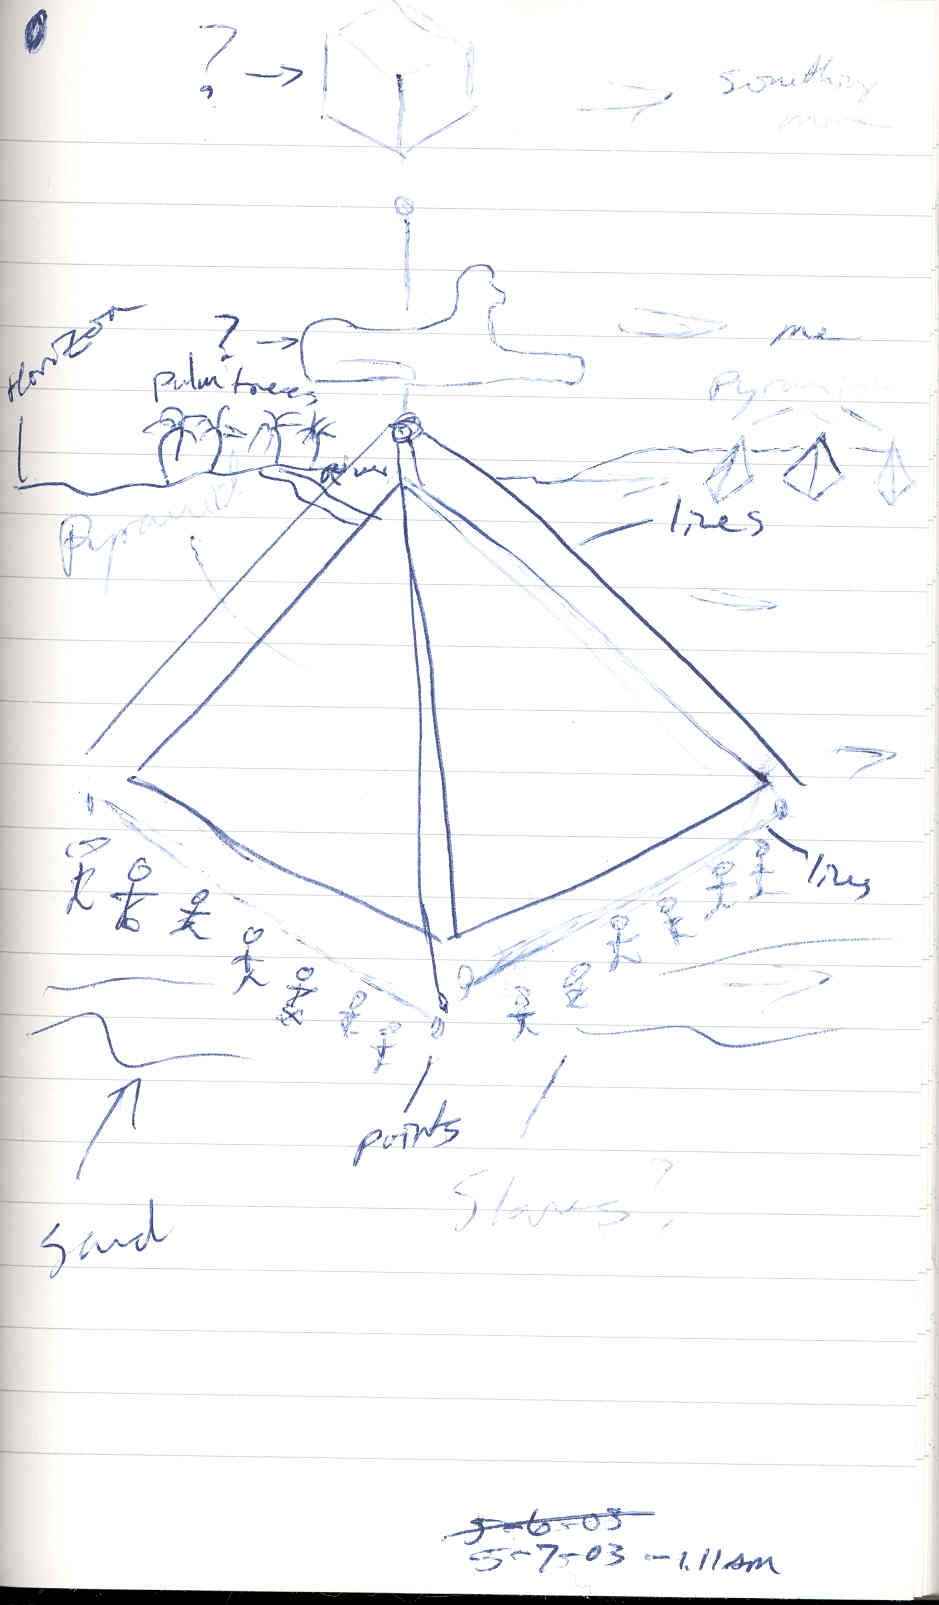 ?
something
Horizon
?
me
palm trees
Pyramids
river
Pyramid
lines
lines
points
Slaves?
Sand
5-6-03
5-7-03 - 1:11am